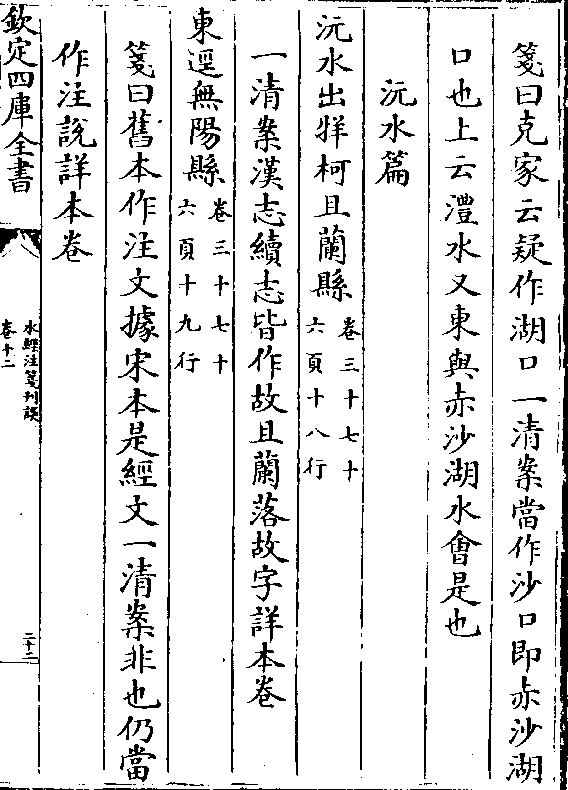 箋曰克家云疑作湖口一清案當作沙口即赤沙湖
口也上云澧水又東與赤沙湖水會是也
沅水篇
沅水出牂柯且蘭縣卷三十七十六頁十八行
一清案漢志續志皆作故且蘭落故字詳本卷
東逕無陽縣卷三十七十六頁十九行
箋曰舊本作注文據宋本是經文一清案非也仍當
作注說詳本卷
欽定四庫全書
水經注箋刊誤
卷十二
二十二